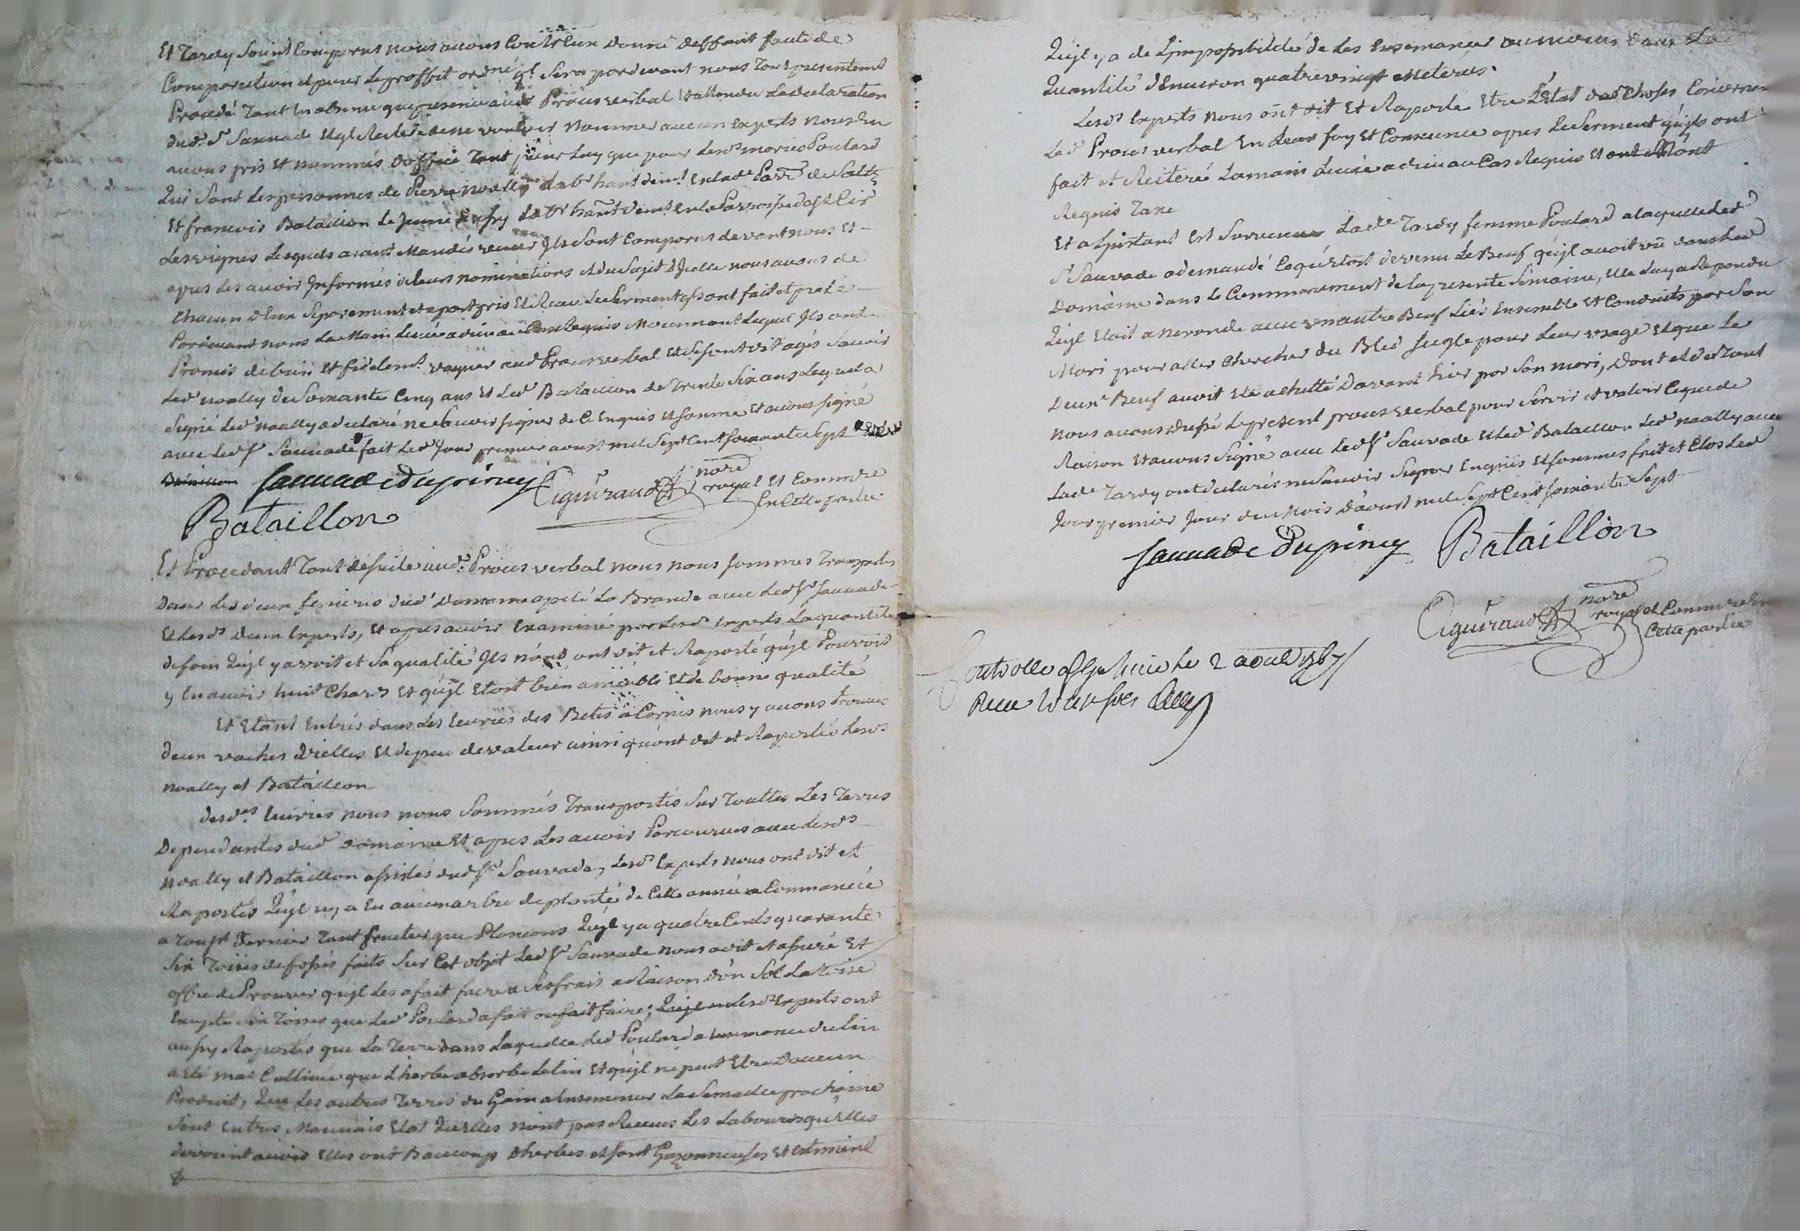 Et Tardy Soient Comparus nous avons Contr'Eux donné deffaut faute de
Comparution et pour le proffit ordné ql. Sera par devant nous Tout presentement
Procedé Tant En absence que presence aud. Procès verbal Et attendu La declaration
dud. Sr. Sauvade Et ql. Refuse de ne vouloir nommer aucun Experts nous En
avons pris Et nommés d'office Tant pour Luy que pour Lesd. mariés Poulard
Qui Sont Les personnes de Pierre noally Labr. habitant demt. En lad. Parr. de Salt
Et francois Bataillon Le Jeune aussy Labr. habt. demt. En la Parroisse de St. Cir
Les vignes Lesquels ayant Mandés venir Ils Sont Comparus devant nous Et
apres Les avoir Informés de leurs nominations Et du Sujet d'Icelle nous avons de
Chacun d'Eux Separement et apart pris Et Receu Le Serment qls. ont fait et preté
Pardevant nous La Main Levée a dieu au Cas Requis Moyennant Lequel Ils ont
Promis de bien Et fidelemt. vaquer aud. Procès verbal Et Se Sont dit agés Savoir
Led. noally de Soixante Cinq ans Et Led. Bataillon de Trente Six ans Lequel a
Signé Led. noally a declaré ne Savoir signer de ce Enquis Et Sommé Et avons signé
avec Led. Sr. Sauvade fait Led. Jour premier aoust mil Sept Cent Soixante Sept
Sauvade Dupiney Ciguiraud nore. royal Et Commre
En Cette partie
Bataillon
Et Procedant Tout de Suite aud. Procès verbal nous nous sommes Transportés
Dans Les deux feniers dud. Domaine apelé La Brande avec Led. Sr. Sauvade
Et Lesd. deux Experts, Et apres avoir Examiné par Lesd. Experts La quantité
de foin Qu'jl y avoit et Sa qualité Ils nous ont dit et Raporté qu'jl Pouvoit
y En avoir huit Chars Et qu'jl Etoit bien amenblé Et de bonne qualité
Et Etant Entrés dans Les Ecuries des Betes a Cornes nous y avons Trouvé
deux vaches vieilles Et de peu de valeur ainsi qu'ont dit et Raporté Lesd.
noally et Bataillon
desd. Ecuries nous nous Sommes Transportés Sur Touttes Les Terres
Dependantes dud. Domaine Et apres Les avoir Parcourues avec Lesd.
noally et Bataillon assistés dud. Sr. Sauvade, Lesd. Experts nous ont dit et
Raportés Qu'jl n'y a Eu aucun arbre de planté de Cette année a Commencé
a Toust. Dernier Tant fruitier que Plancons Qu'jl y a quatre Cents quarante
Six Toises de fossés faits Sur Cet objet Led. Sr. Sauvade nous a dit et assuré Et
offre de Prouver qu'jl Les a fait faire a Ses frais a Raison d'un Sol La Toise
Excepté Six Toises que Led. Poulard a fait ou fait faire; Qu'jl Lesd. Experts ont
aussy Raportés que La Terre dans Laquelle Led. Poulard a Ensemencé du Lin
a Eté mal Cultivée que L'herbe absorbe le lin Et qu'jl ne peut Etre D'aucun
Produit, Que Les autres Terres du Gaim a Ensemencer La Semaille prochaine
Sont En tres Mauvais Etat qu'elles n'ont pas Receues Les Labourés qu'Elles
devroient avoir Elles ont Beaucoup d'herbes et sont Gazonneuses Et Estiment
Qu'jl y a de L'impossibilité de Les Ensemancer au moins dans La
Quantité d'Environ quatre vingt Meterées.
Lesd. Experts nous ont dit Et Raporté Etre L'Etat des Choses Concernant
Led. Procès verbal En Leur foy Et Conscience apres Le Serment qu'jls ont
fait et Reiteré La main Levée a dieu au Cas Requis Et ont
Requis Taxe
Et a Linstant Est Survenue Lad. Tardy femme Poulard a laquelle Led.
Sr. Sauvade a demandé Ce qu'Etoit devenu Le Beuf qu'jl avoit vû dans Led.
Domaine dans Le Commencement de La presente Semaine, Elle Luy a Repondu
Qu'jl Etoit a neronde avec un autre Beuf Liés Ensemble Et Conduits par Son
Mari pour aller Chercher du Bled Seigle pour Leur usage Et que Le
Deuxe. Beuf avoit Eté achetté d'avant hier par Son mari, Dont et de Tout
nous avons dressé Le present procès verbal pour Servir et valoir Ce que de
Raison Et avons Signé avec Led. Sr. Sauvade Et Led. Bataillon Led. noally avec
Lad. Tardy ont declarés ne Savoir Signer Enquis Et Sommés fait et Clos Led.
Jour premier Jour du Mois D'aoust mil Sept Cent Soixante Sept
Sauvade Dupiney Bataillon
Ciguiraud nore. royal et Commre En
Cette partie
Controllé a St. Just le 2 aoust 1767
Receu